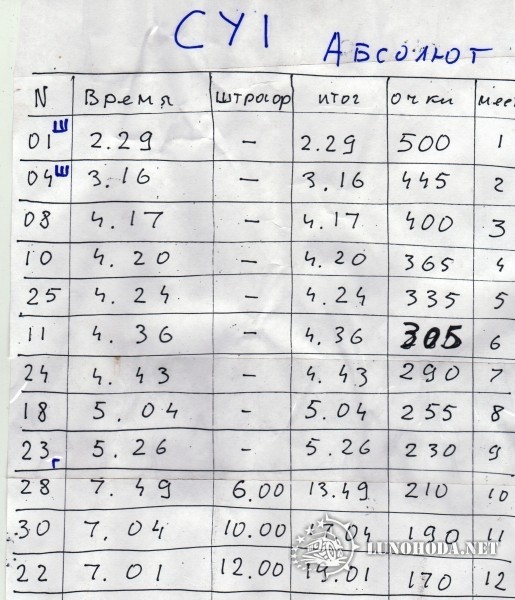 СУ1 Абсолют
N Время штрафор итог очки мест
01 ш 2.29 – 2.29 500 1
04 ш 3.16 – 3.16 445 2
08 4.17 – 4.17 400 3
10 4.20 – 4.20 365 4
25 4.24 – 4.24 335 5
11 4.36 – 4.36 305 6
24 4.43 – 4.43 290 7
18 5.04 – 5.04 255 8
23 г 5.26 – 5.26 230 9
28 7.49 6.00 13.49 210 10
30 7.04 10.00 17.04 190 11
22 7.01 12.00 19.01 170 12
LUNOHODA.NET